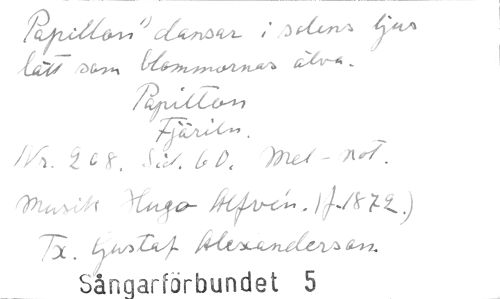 Papillon" dansar i solens ljus
lätt som blommornas älva.
Papillon
Fjäriln.
Nr. 268. Sid. 60. Mel-not.
Musik Hugo Alfvén. (f. 1872.)
Tx. Gustaf Alexanderson.
Sångarförbundet 5